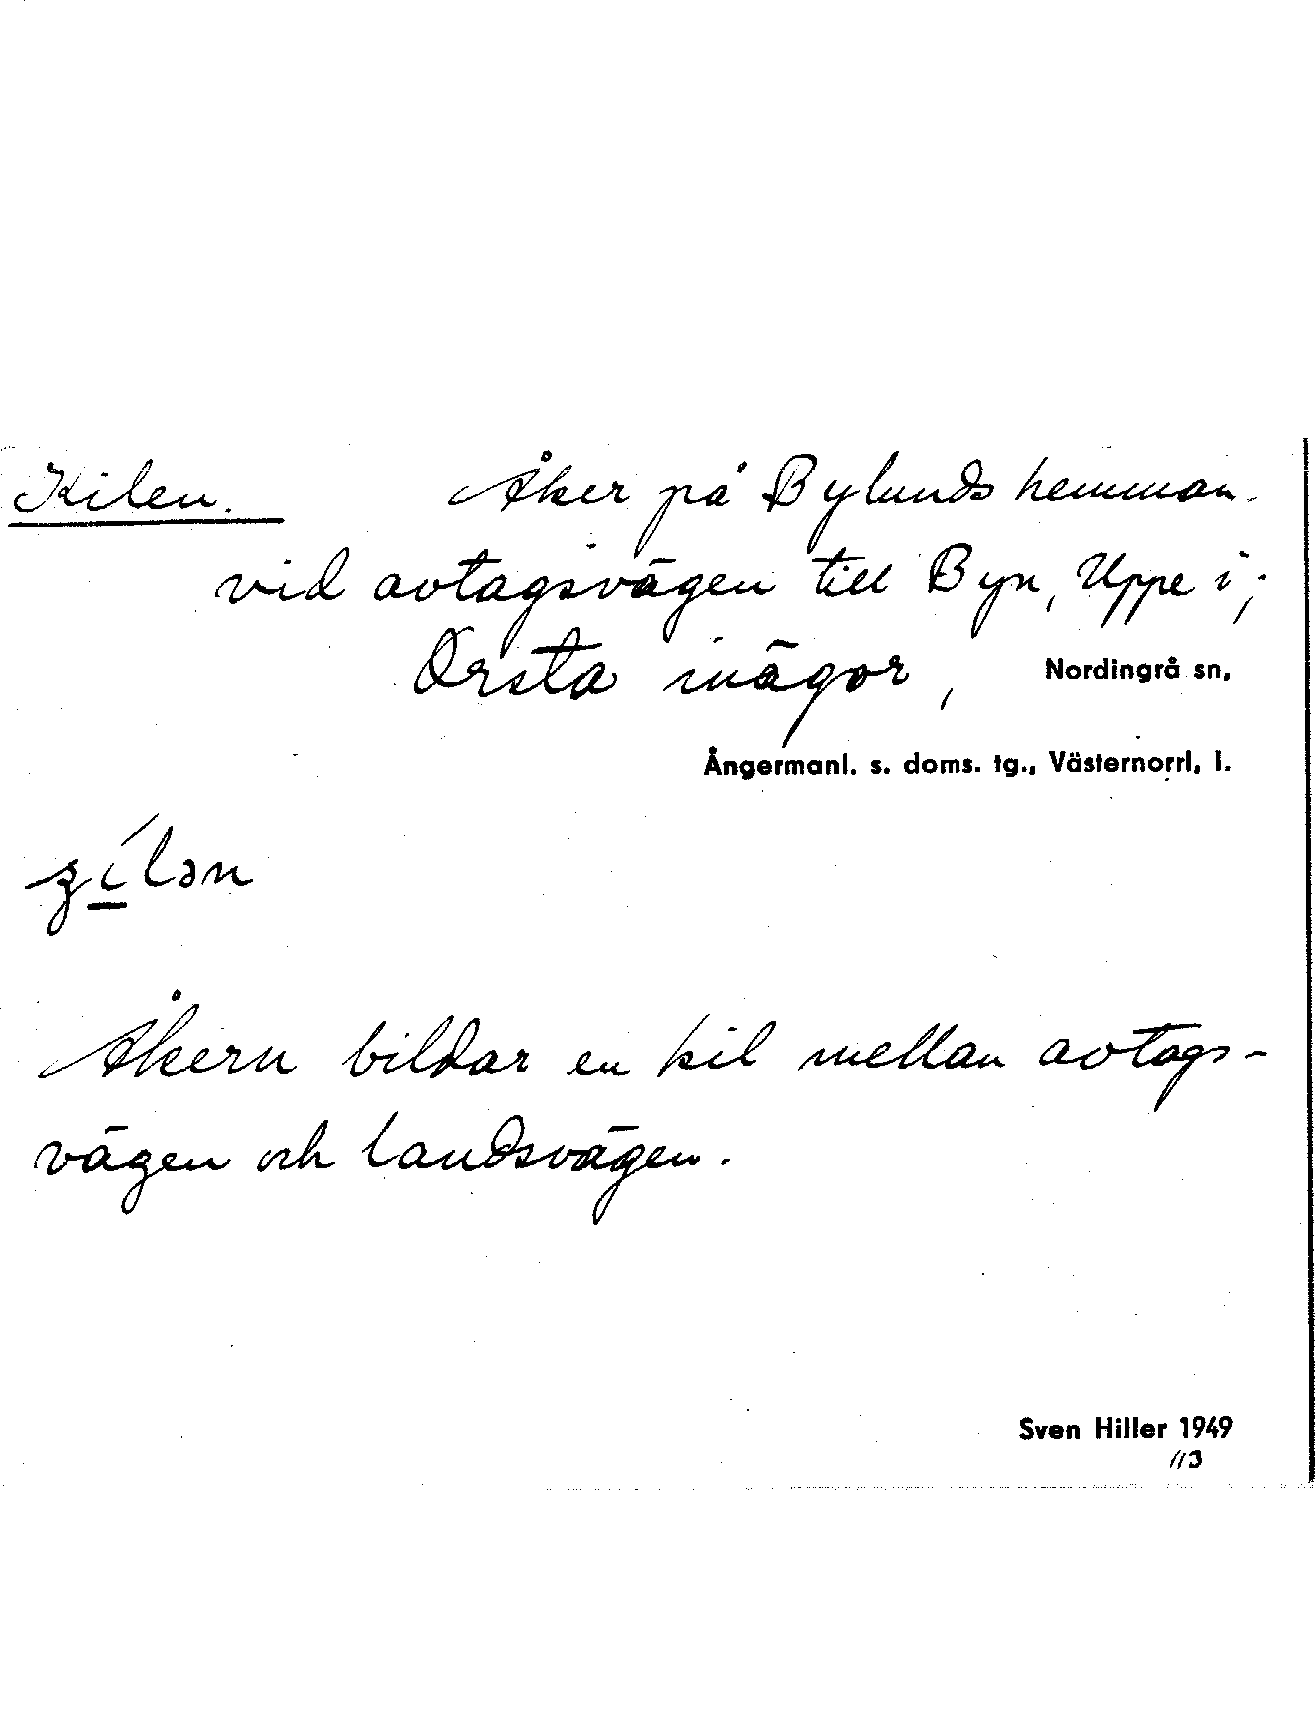 Kilen. Åker på Bylunds hemman
vid avtagsvägen till Byn, Uppe i,
Orsta inägor, Nordingrå sn,
Ångermanl. s. doms. tg., Västernorrl. l.
Åkern bildar en kil mellan avtags-
vägen och landsvägen.
Sven Hiller 1949
113